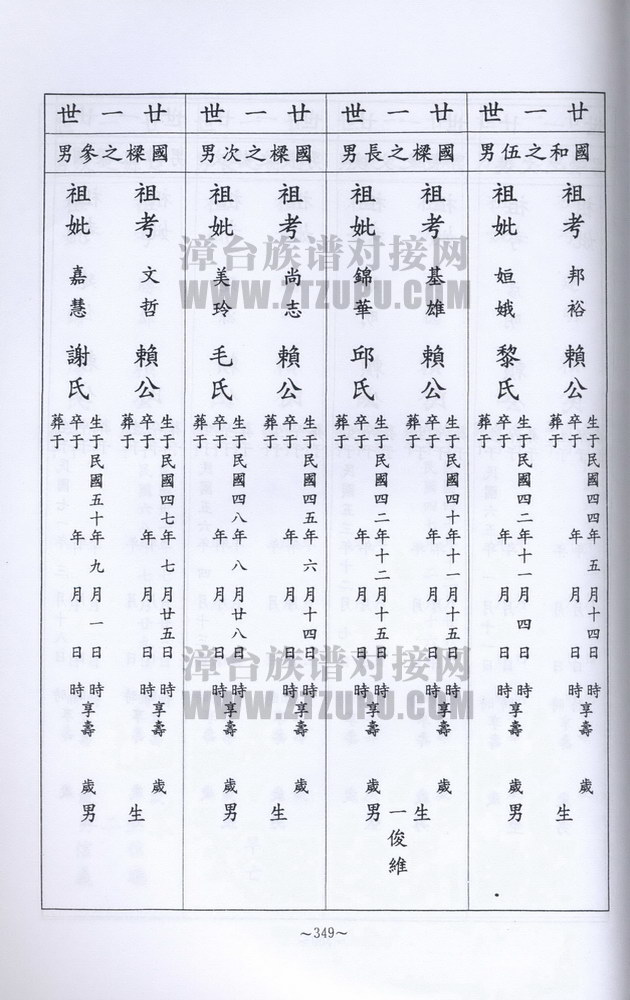 廿一世
國和之伍男
祖考 邦裕 賴公
生于民國四四年五月十四日時
卒于 年 月 日時享壽 歲
葬于
生
祖妣 姮娥 黎氏
生于民國四二年十一月四日時
卒于 年 月 日時享壽 歲
葬于
男
廿一世
國樑之長男
祖考 基雄 賴公
生于民國四十年十一月十五日時
卒于 年 月 日時享壽 歲
葬于
生
祖妣 錦華 邱氏
生于民國四二年十二月十五日時
卒于 年 月 日時享壽 歲
葬于
男
一俊維
廿一世
國樑之次男
祖考 尚志 賴公
生于民國四五年六月十四日時
卒于 年 月 日時享壽 歲
葬于
生
祖妣 美玲 毛氏
生于民國四八年八月廿八日時
卒于 年 月 日時享壽 歲
葬于
男
廿一世
國樑之參男
祖考 文哲 賴公
生于民國四七年七月廿五日時
卒于 年 月 日時享壽 歲
葬于
生
祖妣 嘉慧 謝氏
生于民國五十年九月一日時
卒于 年 月 日時享壽 歲
葬于
男
~349~
漳台族谱对接网
WWW.ZTZUPU.COM
漳台族谱对接网
WWW.ZTZUPU.COM